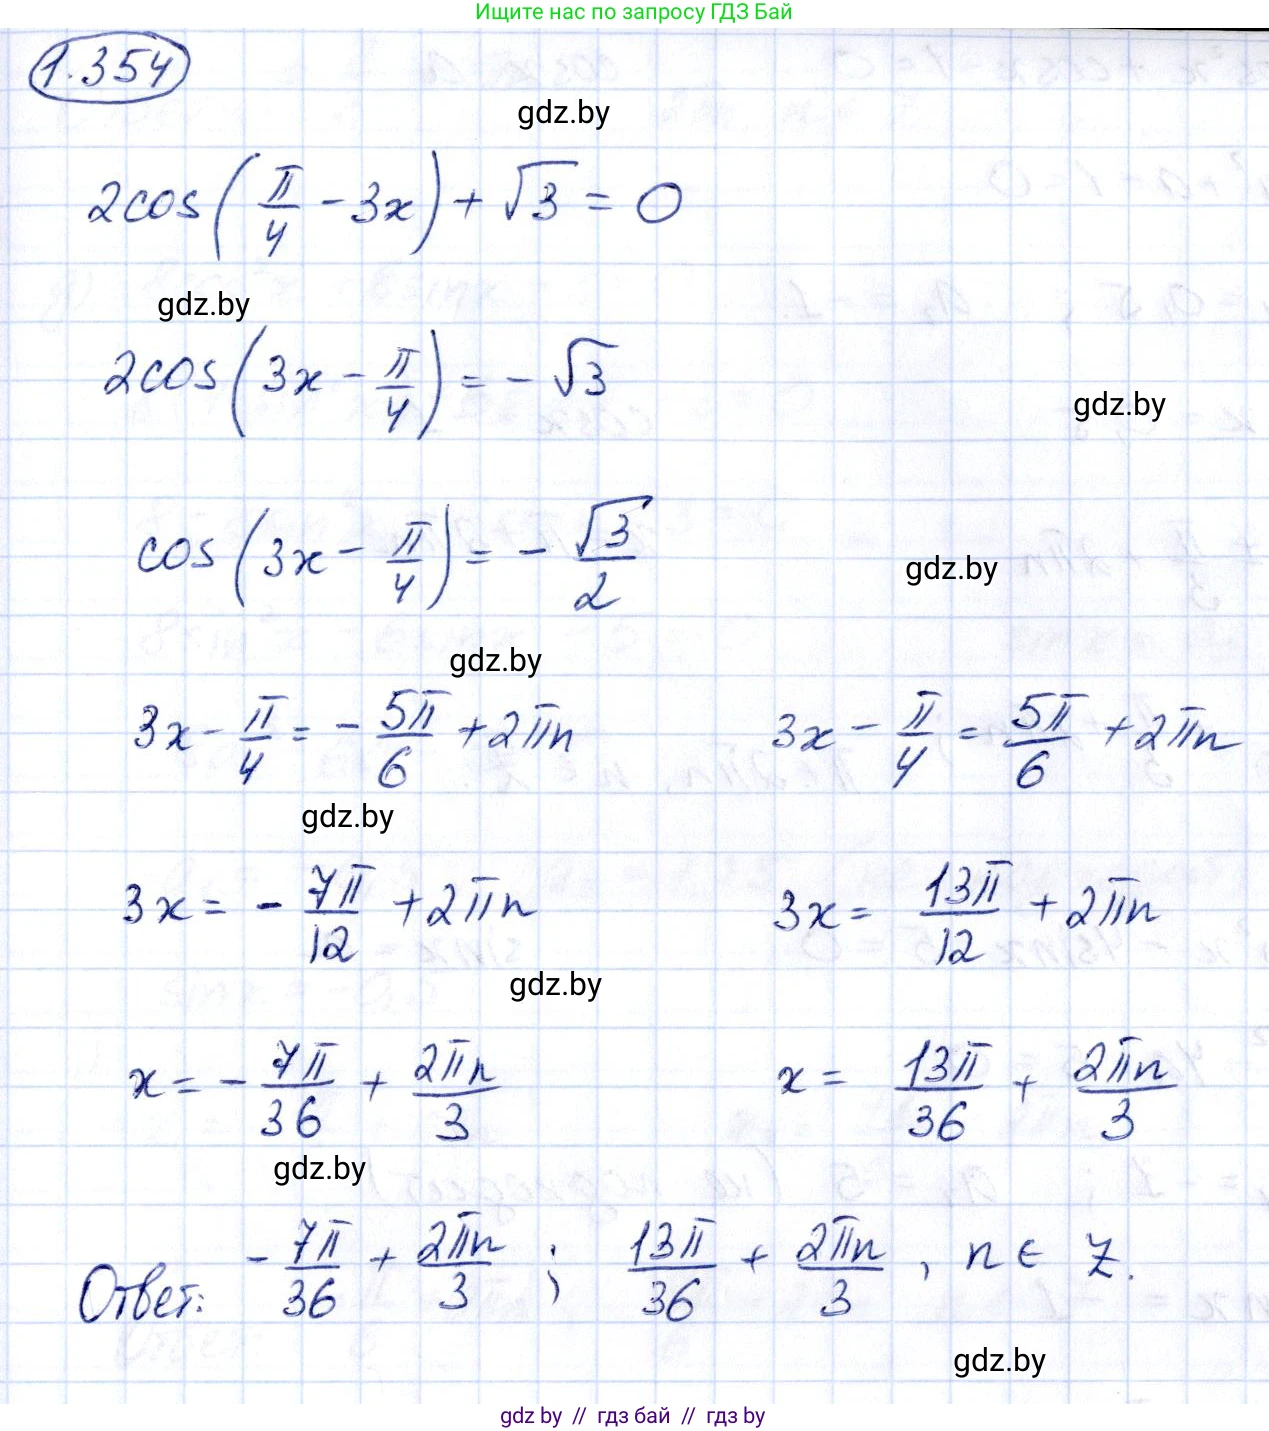 Ищите нас по запросу ГДЗ Бай
1.354
gdz.by
2cos(π/4 - 3x) + √3 = 0
gdz.by
2cos(3x - π/4) = - √3
gdz.by
cos(3x - π/4) = - √3/2
gdz.by
gdz.by
3x - π/4 = - 5π/6 + 2πn    3x - π/4 = 5π/6 + 2πn
gdz.by
3x = - 7π/12 + 2πn    3x = 13π/12 + 2πn
gdz.by
x = - 7π/36 + 2πn/3    x = 13π/36 + 2πn/3
gdz.by
Ответ: - 7π/36 + 2πn/3 ; 13π/36 + 2πn/3 , n ∈ Z.
gdz.by
gdz by // гдз бай // гдз by